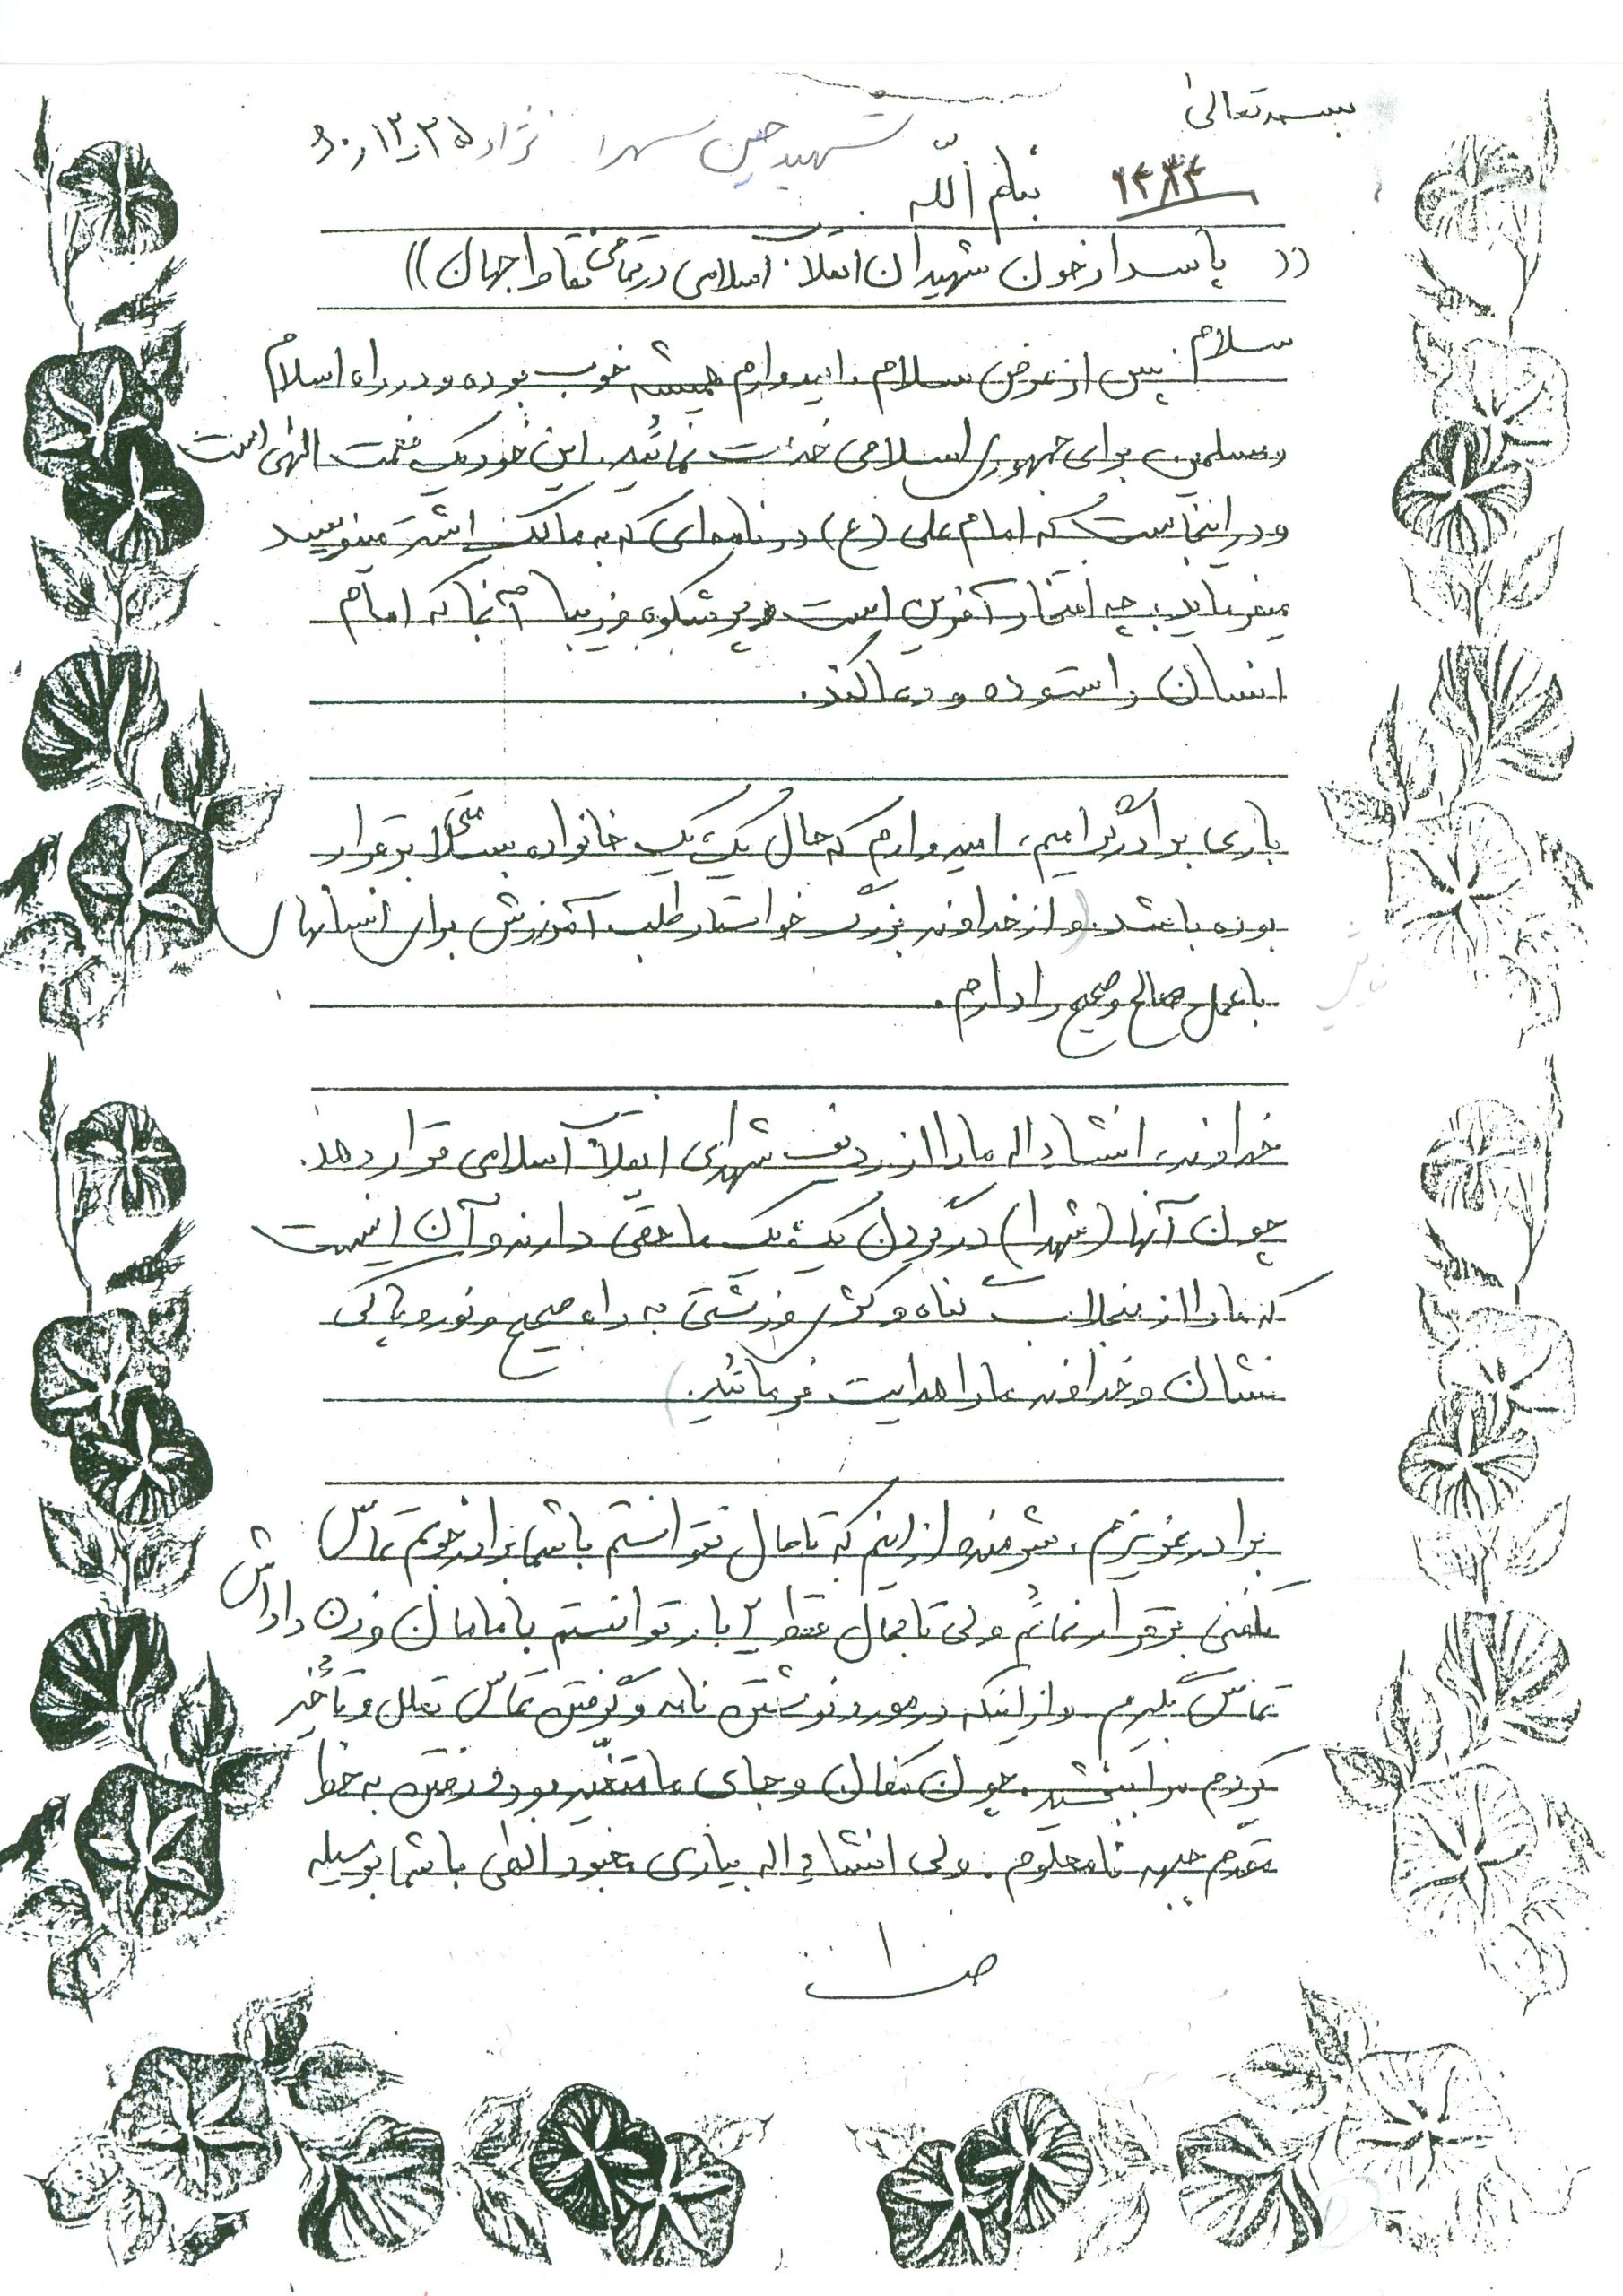 بسمه تعالی
شهید حسین سهرا نژاد ۶۰٫۱۲٫۲۵
بنام الله ۱۴۳۴
((پاسدار خون شهیدان انقلاب اسلامی در تمامی نقاط جهان))
سلام پس از عرض سلام، امیدوارم همیشه خوب بوده و در راه اسلام
و مسلمین برای جمهوری اسلامی خدمت نمائید. این خود یک نعمت الهی است
و در اینجاست که امام علی (ع) در نامه‌ای که به مالک اشتر مینویسد
میفرماید، چه افتخار آفرین است و پر شکوه و زیبا آنجا که امام
انسان را ستوده و دعا کند.
باری برادر گرامیم، امیدوارم که حال یک یک خانواده بسلامتی برقرار
بوده باشد. و از خداوند بزرگ خواستار طلب آمرزش برای انسانهای
با عمل صالح و صحیح را دارم.
خداوند، انشاءاله ما را از ردیف شهدای انقلاب اسلامی قرار دهد.
چون آنها (شهدا) در گردن یک یک ما حقی دارند و آن اینست
که ما را از منجلاب گناه و کژی و زشتی به راه صحیح و نور و پاکی
نشان و خداوند ما را هدایت فرمائید.
برادر عزیزم، شرمنده از اینم که تا حال نتوانستم با شما برادر خوبم تماس
تلفنی برقرار نمائم ولی تا بحال فقط یکبار توانستم با مامان و زن داداش
تماس بگیرم. و از اینکه در مورد نوشتن نامه و گرفتن تماس تعلل و تأخیر
کردم مرا ببخشید، چون مکان و جای ما متغیر بود و رفتن به خط
مقدم جبهه نامعلوم. ولی انشاءاله بیاری معبود الهی با شما بوسیله